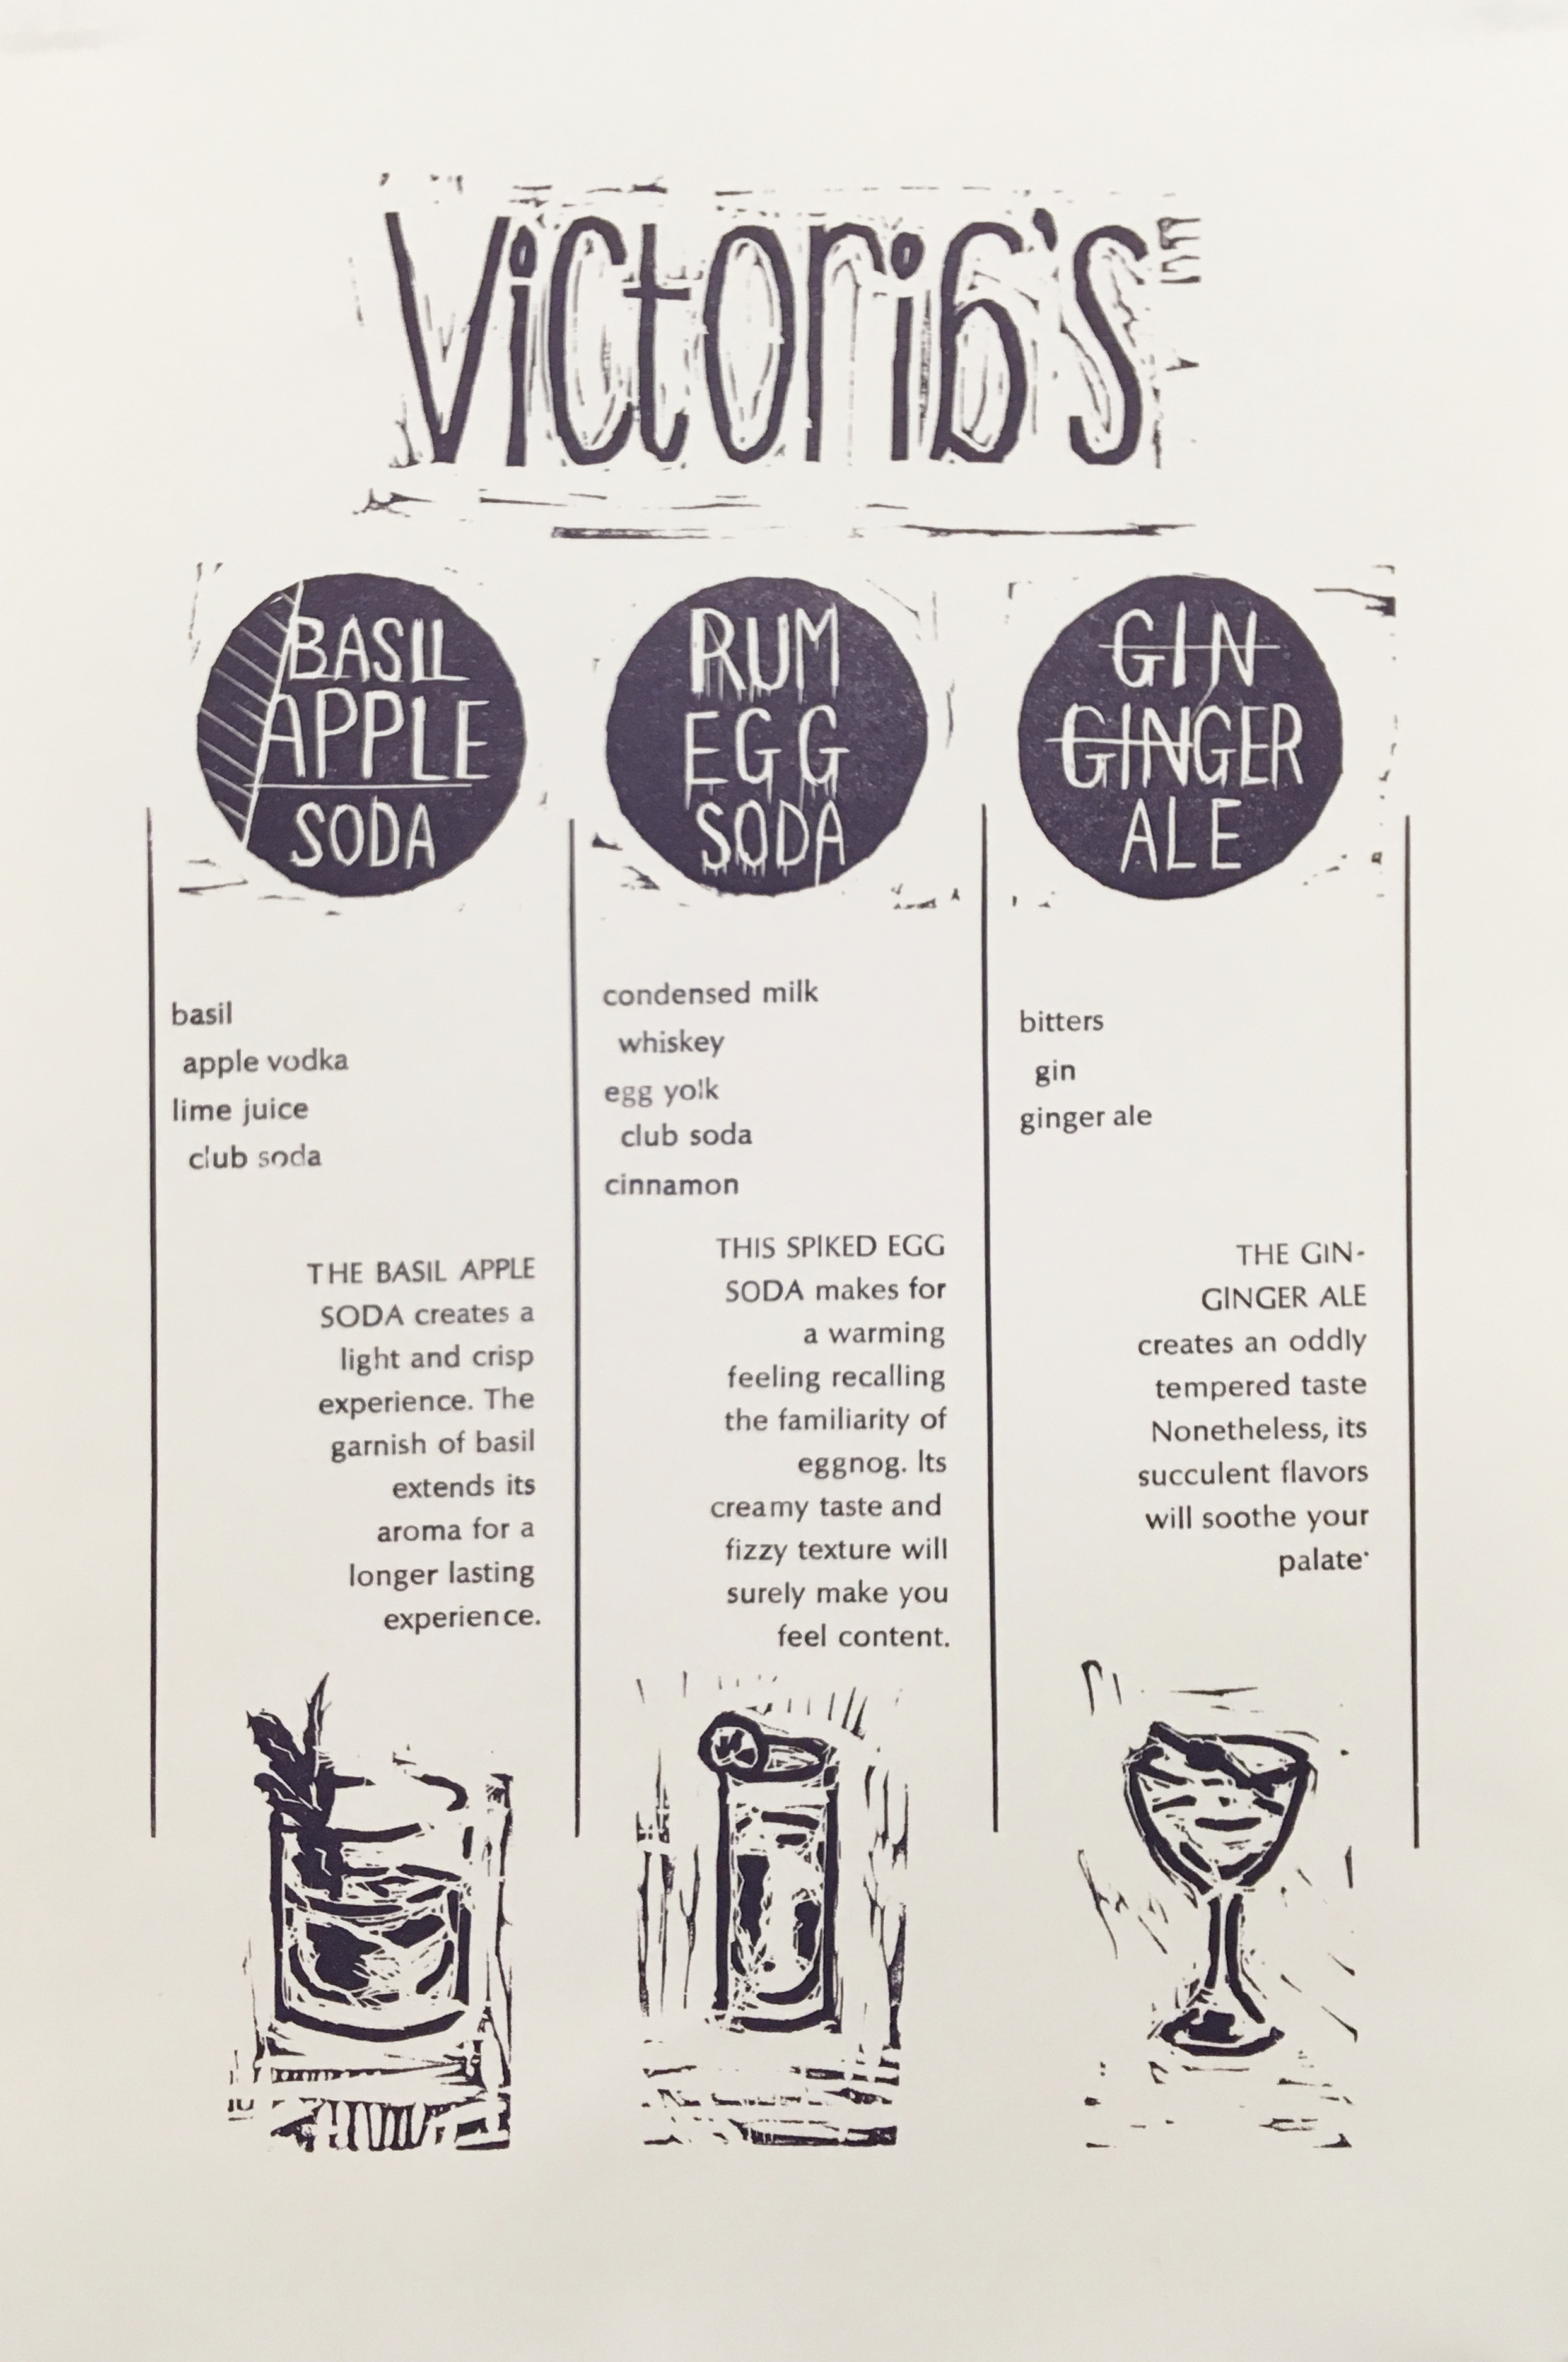 Victoria's
BASIL
APPLE
SODA
basil
apple vodka
lime juice
club soda
THE BASIL APPLE
SODA creates a
light and crisp
experience. The
garnish of basil
extends its
aroma for a
longer lasting
experience.
RUM
EGG
SODA
condensed milk
whiskey
egg yolk
club soda
cinnamon
THIS SPIKED EGG
SODA makes for
a warming
feeling recalling
the familiarity of
eggnog. Its
creamy taste and
fizzy texture will
surely make you
feel content.
GIN
GINGER
ALE
bitters
gin
ginger ale
THE GIN-
GINGER ALE
creates an oddly
tempered taste
Nonetheless, its
succulent flavors
will soothe your
palate·